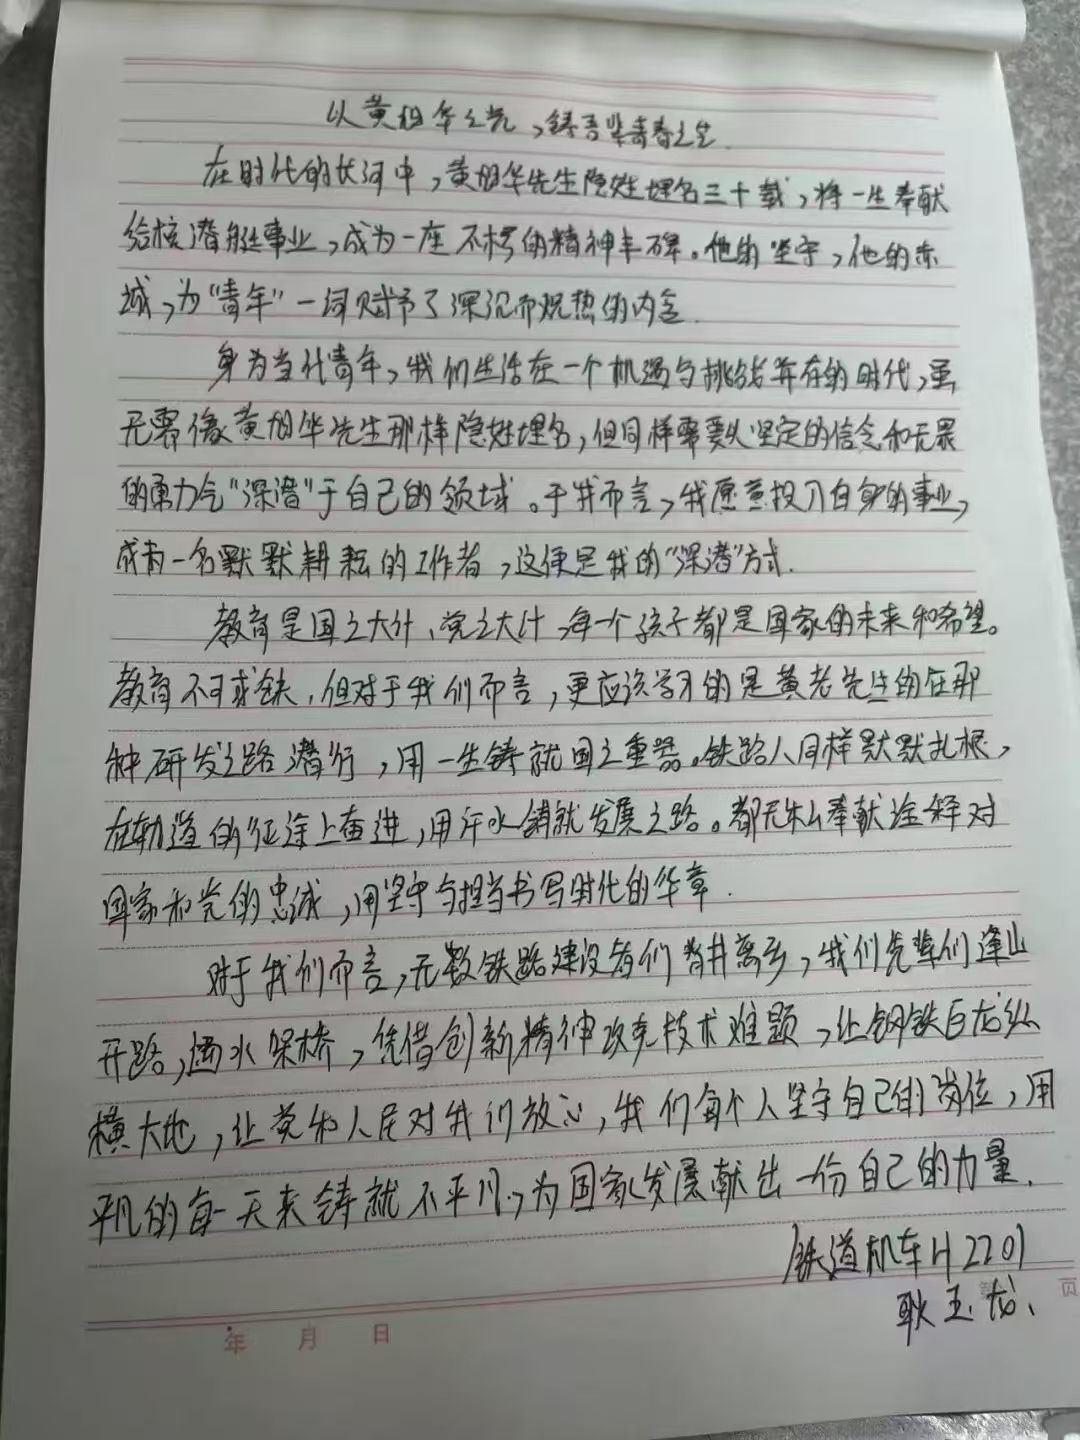 以黄旭华之光，铸吾辈青春之
在时代的长河中，黄旭华先生隐姓埋名三十载，将一生奉献
给核潜艇事业，成为一座不朽的精神丰碑。他的坚守，他的赤
诚，为“青年”一词赋予了深沉而炽热的内含.
身为当代青年，我们生活在一个机遇与挑战并存的时代，虽
无需像黄旭华先生那样隐姓埋名，但同样需要以坚定的信念和无畏
的勇力气“深潜”于自己的领域。于我而言，我愿意投入自身的事业，
成为一名默默耕耘的工作者，这便是我的“深潜”方式.
教育是国之大计、党之大计，每一个孩子都是国家的未来和希望。
教育不可或缺，但对于我们而言，更应该学习的是黄老先生的在那
种研发之路潜行，用一生铸就国之重器。铁路人同样默默扎根，
在轨道的征途上奋进，用汗水铸就发展之路。都无私奉献诠释对
国家和党的忠诚，用坚守与担当书写时代的华章.
对于我们而言，无数铁路建设者们背井离乡，我们先辈们逢山
开路，遇水架桥，凭借创新精神攻克技术难题，让钢铁巨龙纵
横大地，让党和人民对我们放心，我们每个人坚守自己的岗位，用
平凡的每一天来铸就不平凡，为国家发展献出一份自己的力量.
铁道机车H2201
耿玉龙、
页
年 月 日